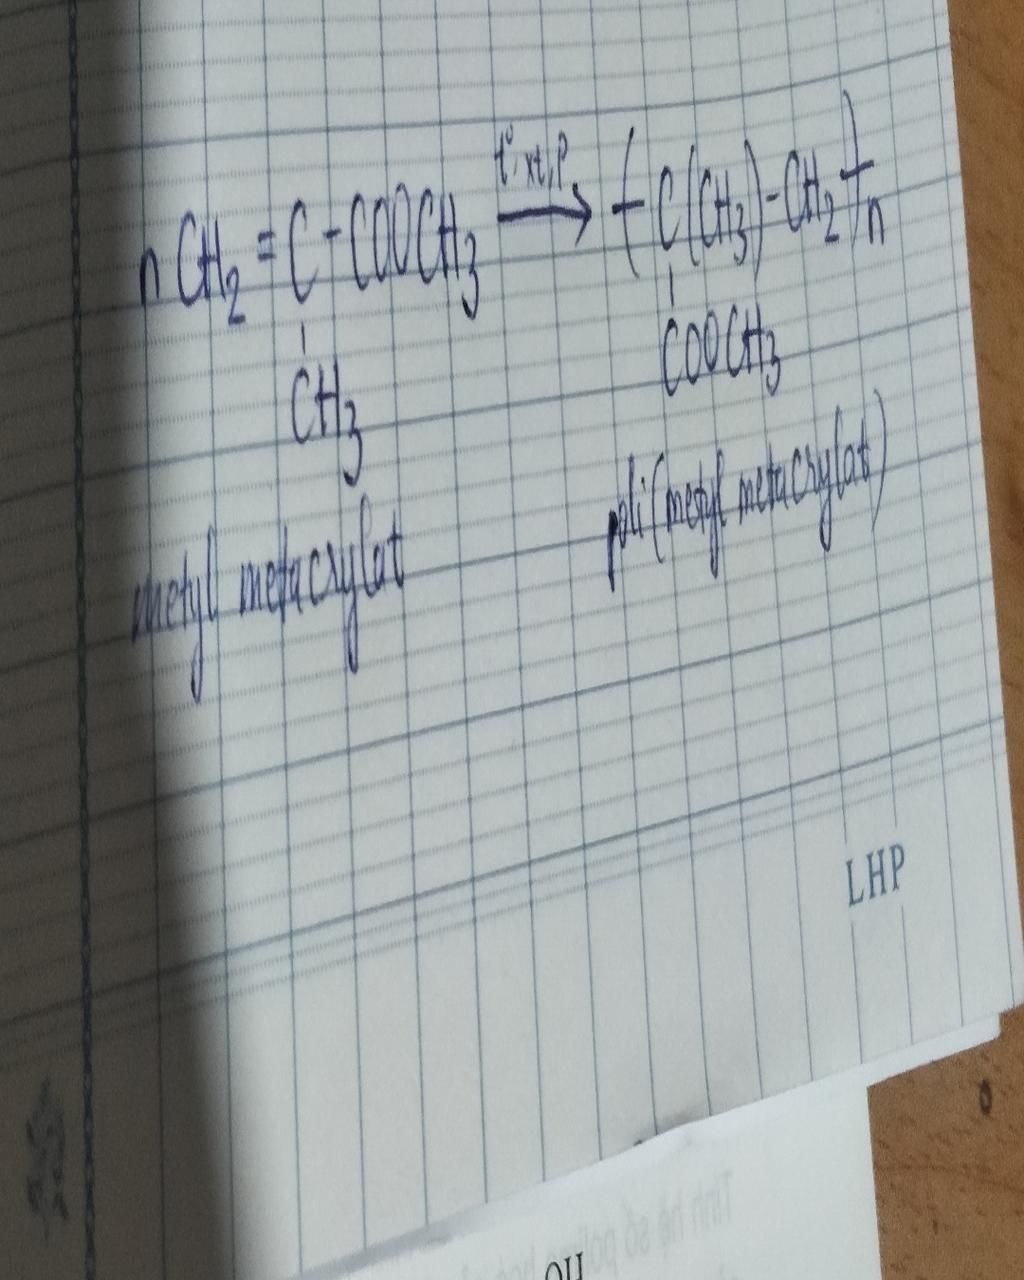 nCH₂ = C - COOCH₃ t°, xt, P → (- C(CH₃) - CH₂ -)n
CH₃ COOCH₃
metyl metacrylat poli(metyl metacrylat)
LHP
OH